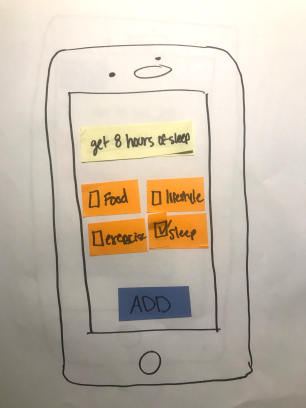 get 8 hours of sleep
Food
lifestyle
exercise
sleep
ADD